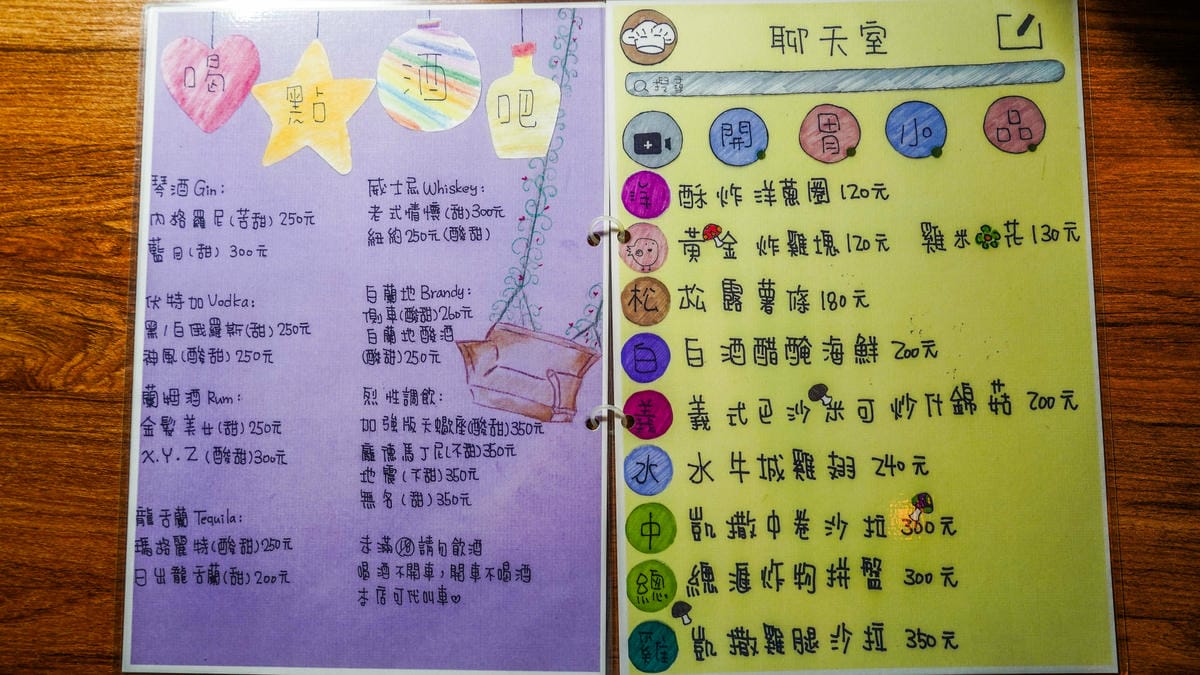 喝 點 酒 吧
琴酒 Gin:
內格羅尼(苦甜) 250元
藍月(甜) 300元
伏特加 Vodka:
黑/白俄羅斯(甜) 250元
神風(酸甜) 250元
蘭姆酒 Rum:
金髮美女(甜) 250元
X.Y.Z (酸甜)300元
龍舌蘭 Tequila:
瑪格麗特(酸甜)250元
日出龍舌蘭(甜) 200元
威士忌 Whiskey:
老式情懷(甜)300元
紐約250元(酸甜)
白蘭地 Brandy:
側車(酸甜)260元
白蘭地酸酒
(酸甜)250元
烈性調飲:
加強版天蠍座(酸甜)350元
龐德馬丁尼(不甜)350元
地震(不甜)350元
無名(甜)350元
未滿⑱請勿飲酒
喝酒不開車,開車不喝酒
本店可代叫車♡
聊天室
搜尋
開 胃 小 品
洋 酥炸洋蔥圈 120元
黃金炸雞塊 120元 雞米花 130元
松 松露薯條 180元
白 白酒醋醃海鮮 200元
義 義式巴沙米可炒什錦菇 200元
水 水牛城雞翅 240元
中 凱撒中卷沙拉 300元
總 總滙炸物拼盤 300元
雞 凱撒雞腿沙拉 350元